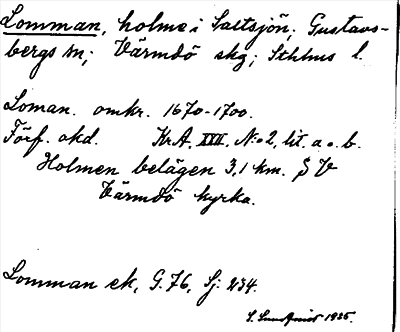 Lomman, holme i Saltsjön; Gustavs-
bergs sn; Värmdö skg; Sthlms l.
Loman. omkr. 1670-1700.
Förf. okd. Kr.A. XVII, N:o 2, lit. a o. b.
Holmen belägen 3,1 km. SV
Värmdö kyrka.
Lomman ek, G. 76, Sj: 234.
1935.